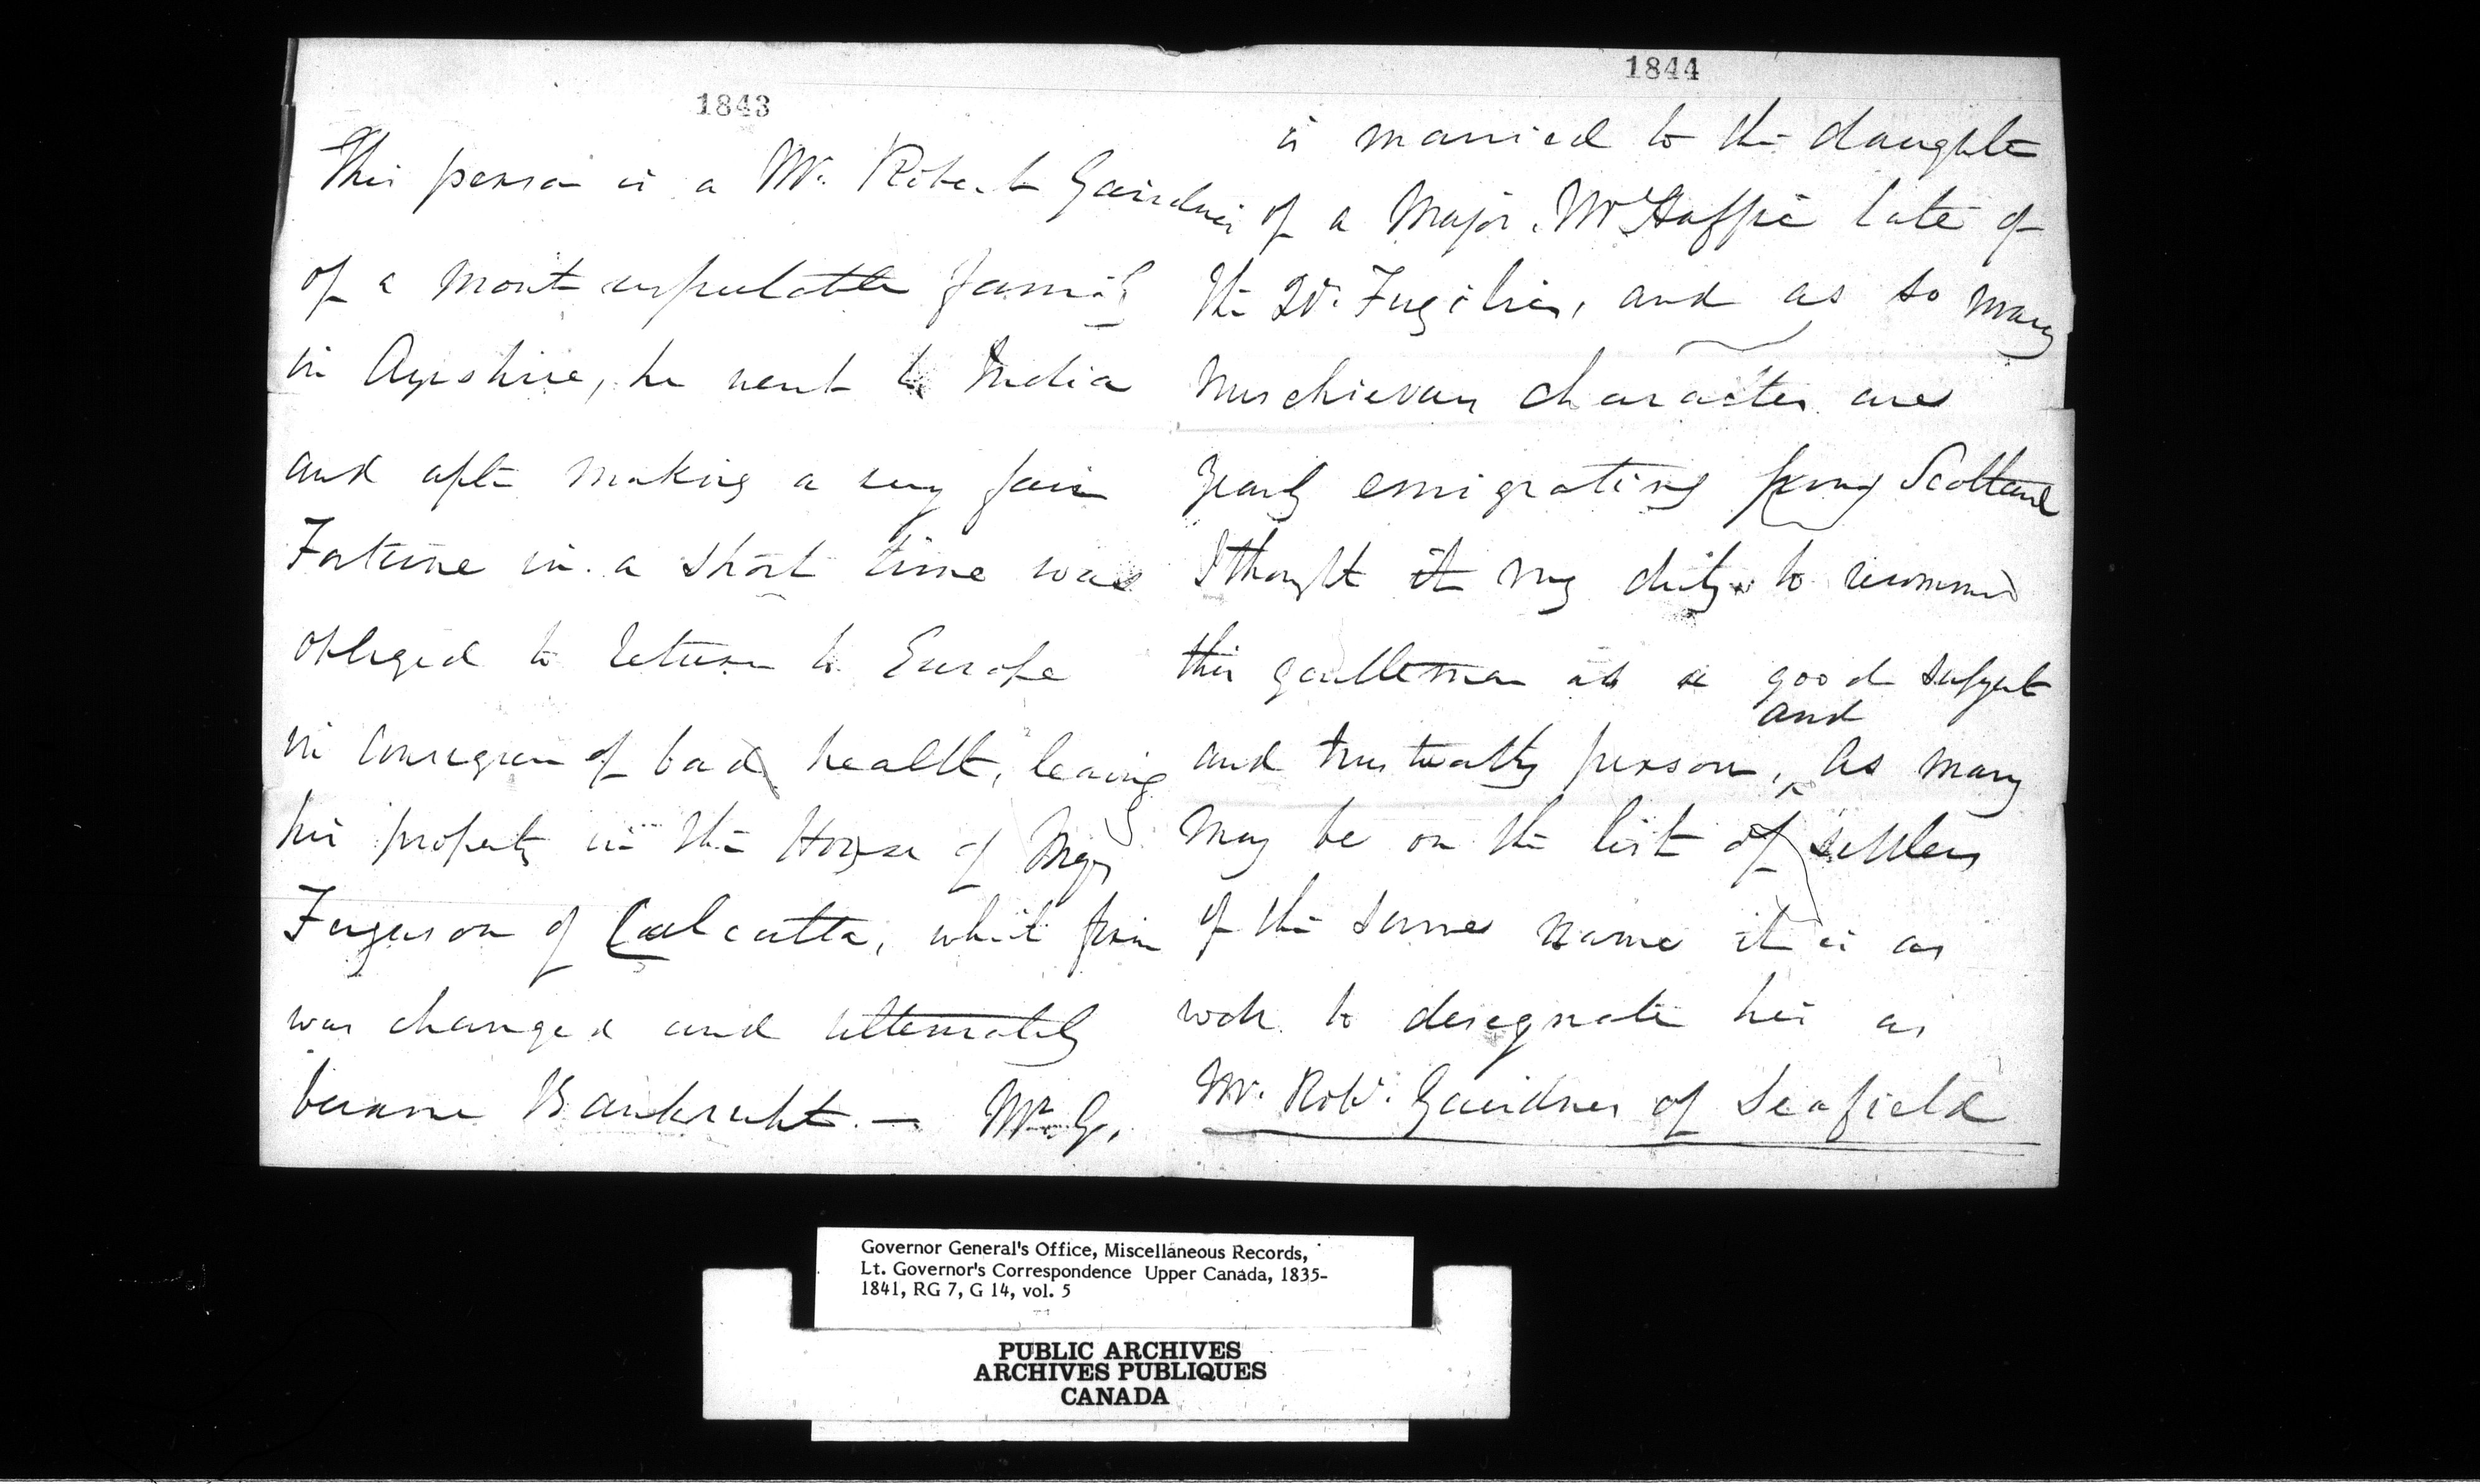 1843
This person is a Mr. Robert Gairdner
of a most respectable family
in Ayrshire, he went to India
and after making a very fair
Fortune in a short time was
obliged to return to Europe
in consequence of bad health, leaving
his property in the House of
Ferguson of Calcutta, which firm
was changed and ultimately
became Bankrupt. — Mr. G.
1844
is married to the daughter
of a Major McHaffie late of
the Fuziliers, and as so many
mischievous characters are
yearly emigrating from Scotland
I thought it my duty to recommend
this gentleman as a good subject
and trustworthy person, and as many
may be on the list of settlers
of the same name it is as
well to designate him as
Mr. Robt. Gairdner of Seafield
Governor General's Office, Miscellaneous Records,
Lt. Governor's Correspondence Upper Canada, 1835-
1841, RG 7, G 14, vol. 5
PUBLIC ARCHIVES
ARCHIVES PUBLIQUES
CANADA